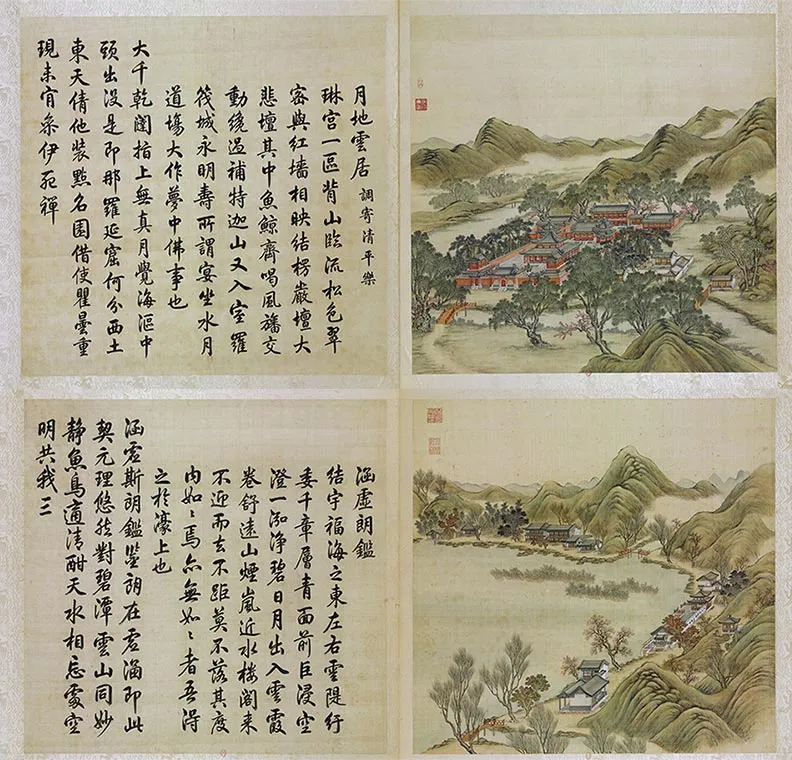 月地雲居 調寄清平樂
琳宮一區背山臨流松色翠
密與紅墻相映結楞嚴壇大
悲壇其中魚鯨齊喝風旛交
動纔過補特迦山又入室羅
筏城永明壽所謂宴坐水月
道場大作夢中佛事也
大千乾闥指上無真月覺海漚中
頭出沒是即那羅延窟何分西土
東天倩他裝點名園借使瞿曇重
現未肎參伊死禪
涵虛朗鑑
結宇福海之東左右雲隄行
委千章層青面前巨浸空
澄一泓淨碧日月出入雲霞
卷舒遠山煙嵐近水樓閣來
不迎而去不距莫不落其度
内如〻焉亦無如〻者吾得
之於濠上也
涵虛斯朗鑑鑒朗在虛涵即此
契元理悠然對碧潭雲山同妙
靜魚鳥適清酣天水相忘處空
明共我三